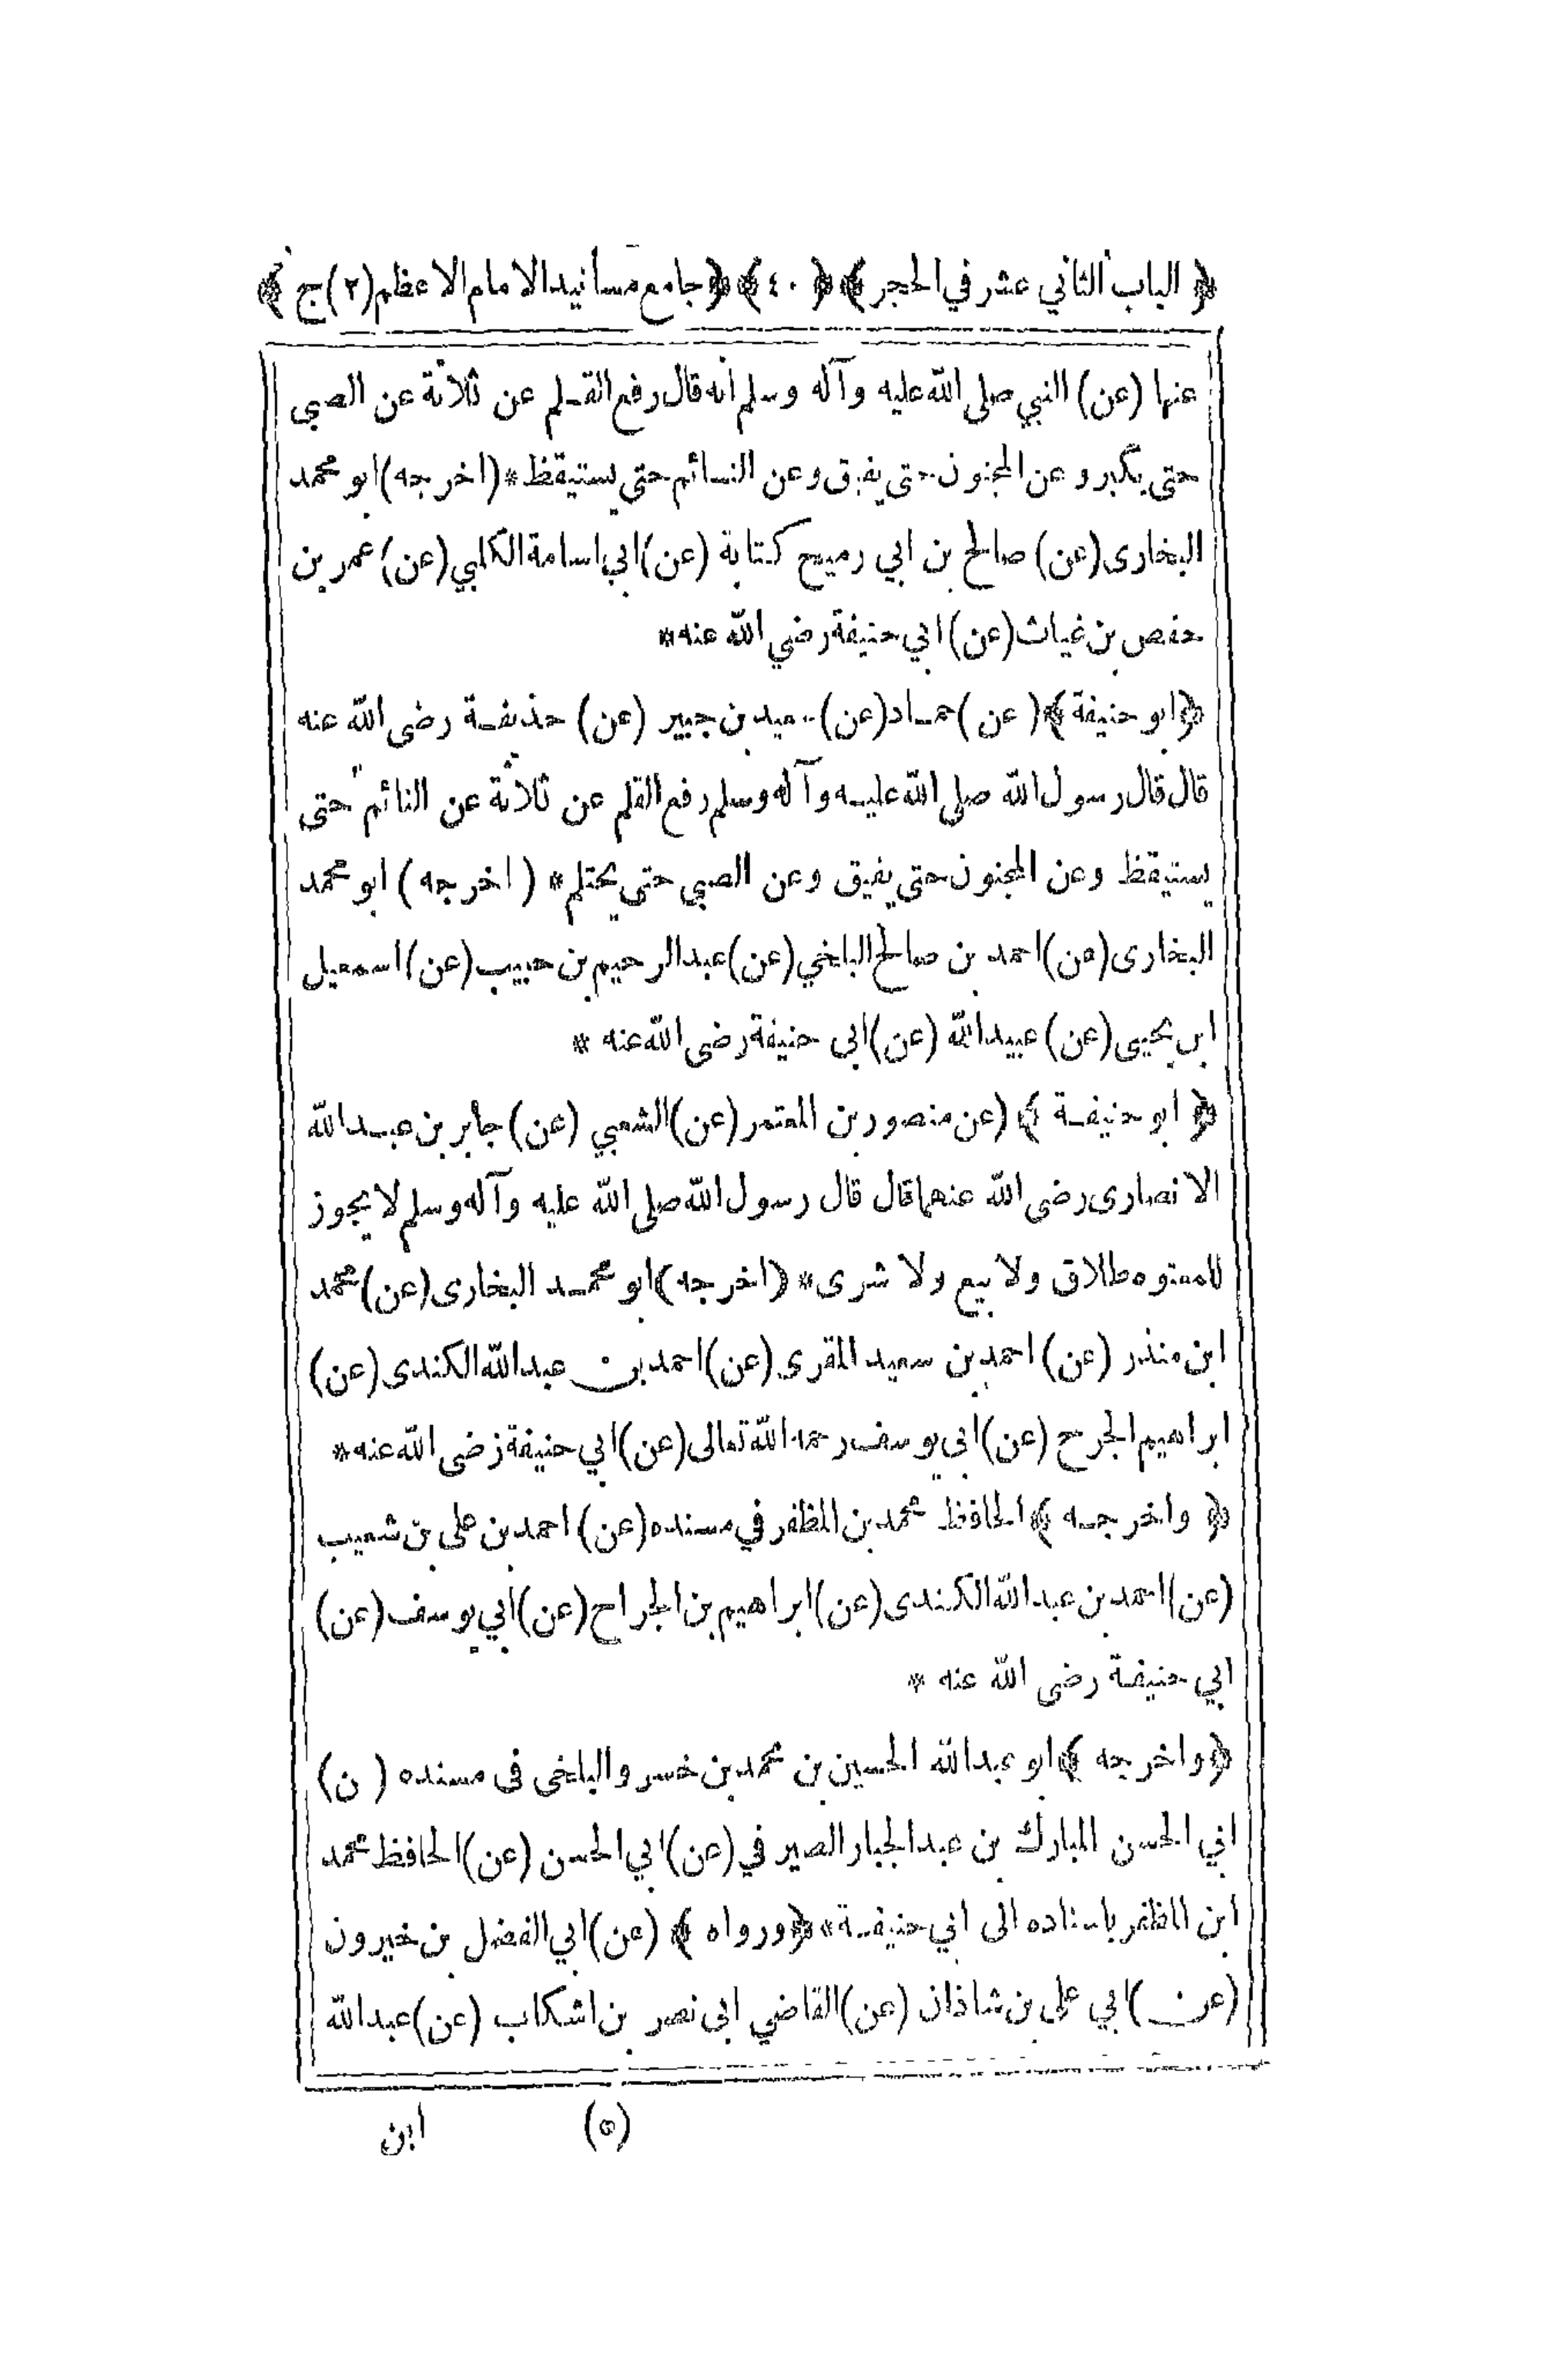 ﴿ الباب الثاني عشر في الحجر ﴾ ﴿ ٤٠ ﴾ ﴿ جامع مسانيد الامام الاعظم (٢) ج ﴾
عنها (عن) النبي صلى الله عليه وآله وسلم أنه قال رفع القلم عن ثلاثة عن الصبي
حتى يكبر وعن المجنون حتى يفيق وعن النائم حتى يستيقظ * (اخرجه) ابو محمد
البخارى (عن) صالح بن ابي رميح كتابة (عن) ابي اسامة الكلبي (عن) عمر بن
حفص بن غياث (عن) ابي حنيفة رضي الله عنه *
﴿ ابو حنيفة ﴾ (عن) حماد (عن) سعيد بن جبير (عن) حذيفة رضى الله عنه
قال قال رسول الله صلى الله عليه وآله وسلم رفع القلم عن ثلاثة عن النائم حتى
يستيقظ وعن المجنون حتى يفيق وعن الصبي حتى يحتلم * (اخرجه) ابو محمد
البخارى (عن) احمد بن صالح البلخي (عن) عبد الرحيم بن حبيب (عن) اسمعيل
ابن يحيى (عن) عبيد الله (عن) ابى حنيفة رضى الله عنه *
﴿ ابو حنيفة ﴾ (عن منصور بن المعتمر (عن) الشعبي (عن) جابر بن عبد الله
الانصارى رضى الله عنهما قال قال رسول الله صلى الله عليه وآله وسلم لا يجوز
للمعتوه طلاق ولا بيع ولا شرى * (اخرجه) ابو محمد البخارى (عن) محمد
ابن منذر (عن) احمد بن سعيد المقرى (عن) احمد بن عبد الله الكندى (عن)
ابراهيم الجرح (عن) ابى يوسف رحمه الله تعالى (عن) ابي حنيفة رضى الله عنه *
﴿ واخرجه ﴾ الحافظ محمد بن المظفر في مسنده (عن) احمد بن على بن شعيب
(عن) احمد بن عبد الله الكندى (عن) ابراهيم بن الجراح (عن) ابي يوسف (عن)
ابي حنيفة رضى الله عنه *
﴿ واخرجه ﴾ ابو عبد الله الحسين بن محمد بن خسرو البلخى فى مسنده ( ن)
ابي الحسن المبارك بن عبد الجبار الصيرفي (عن) ابي الحسن (عن) الحافظ محمد
ابن المظفر باسناده الى ابي حنيفة * ﴿ ورواه ﴾ (عن) ابي الفضل بن خيرون
(عن) ابي على بن شاذان (عن) القاضي ابى نصر بن اشكاب (عن) عبد الله
(٥) ابن